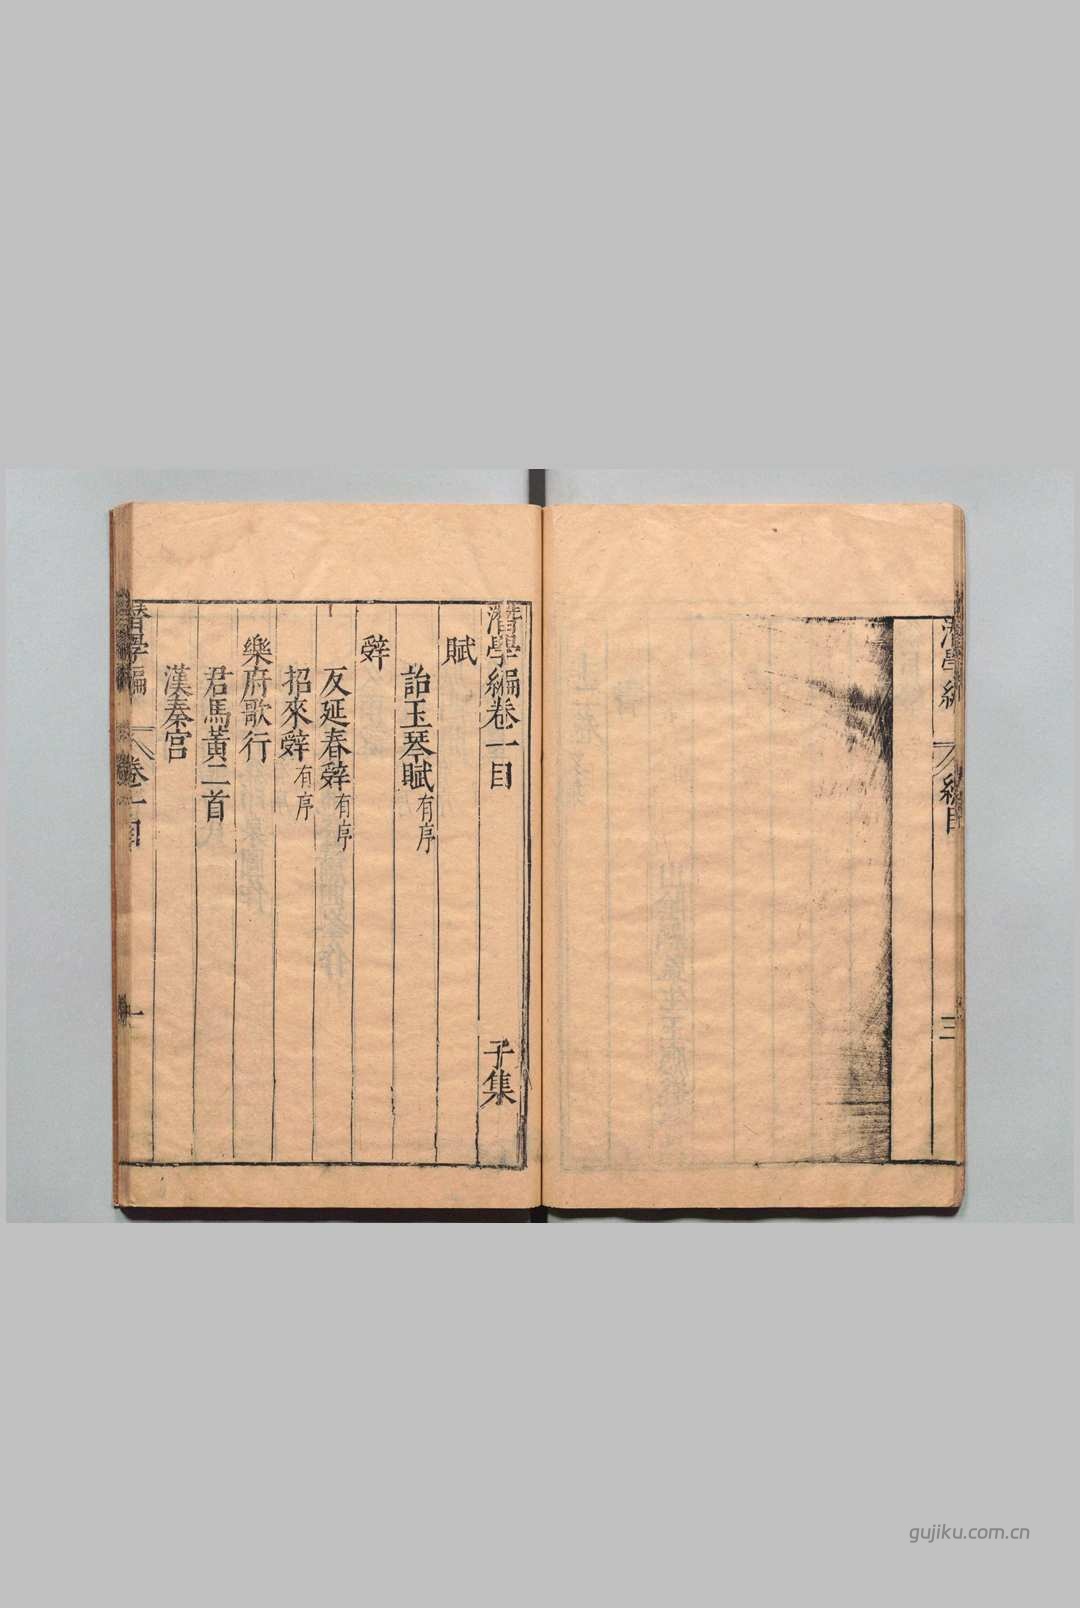 潛學編
總目
三
潛學編卷一目
子集
賦
詒玉琴賦有序
辤
反延春辤有序
招來辤有序
樂府歌行
君馬黃二首
漢秦宮
潛學編
卷一目
一
gujiku.com.cn